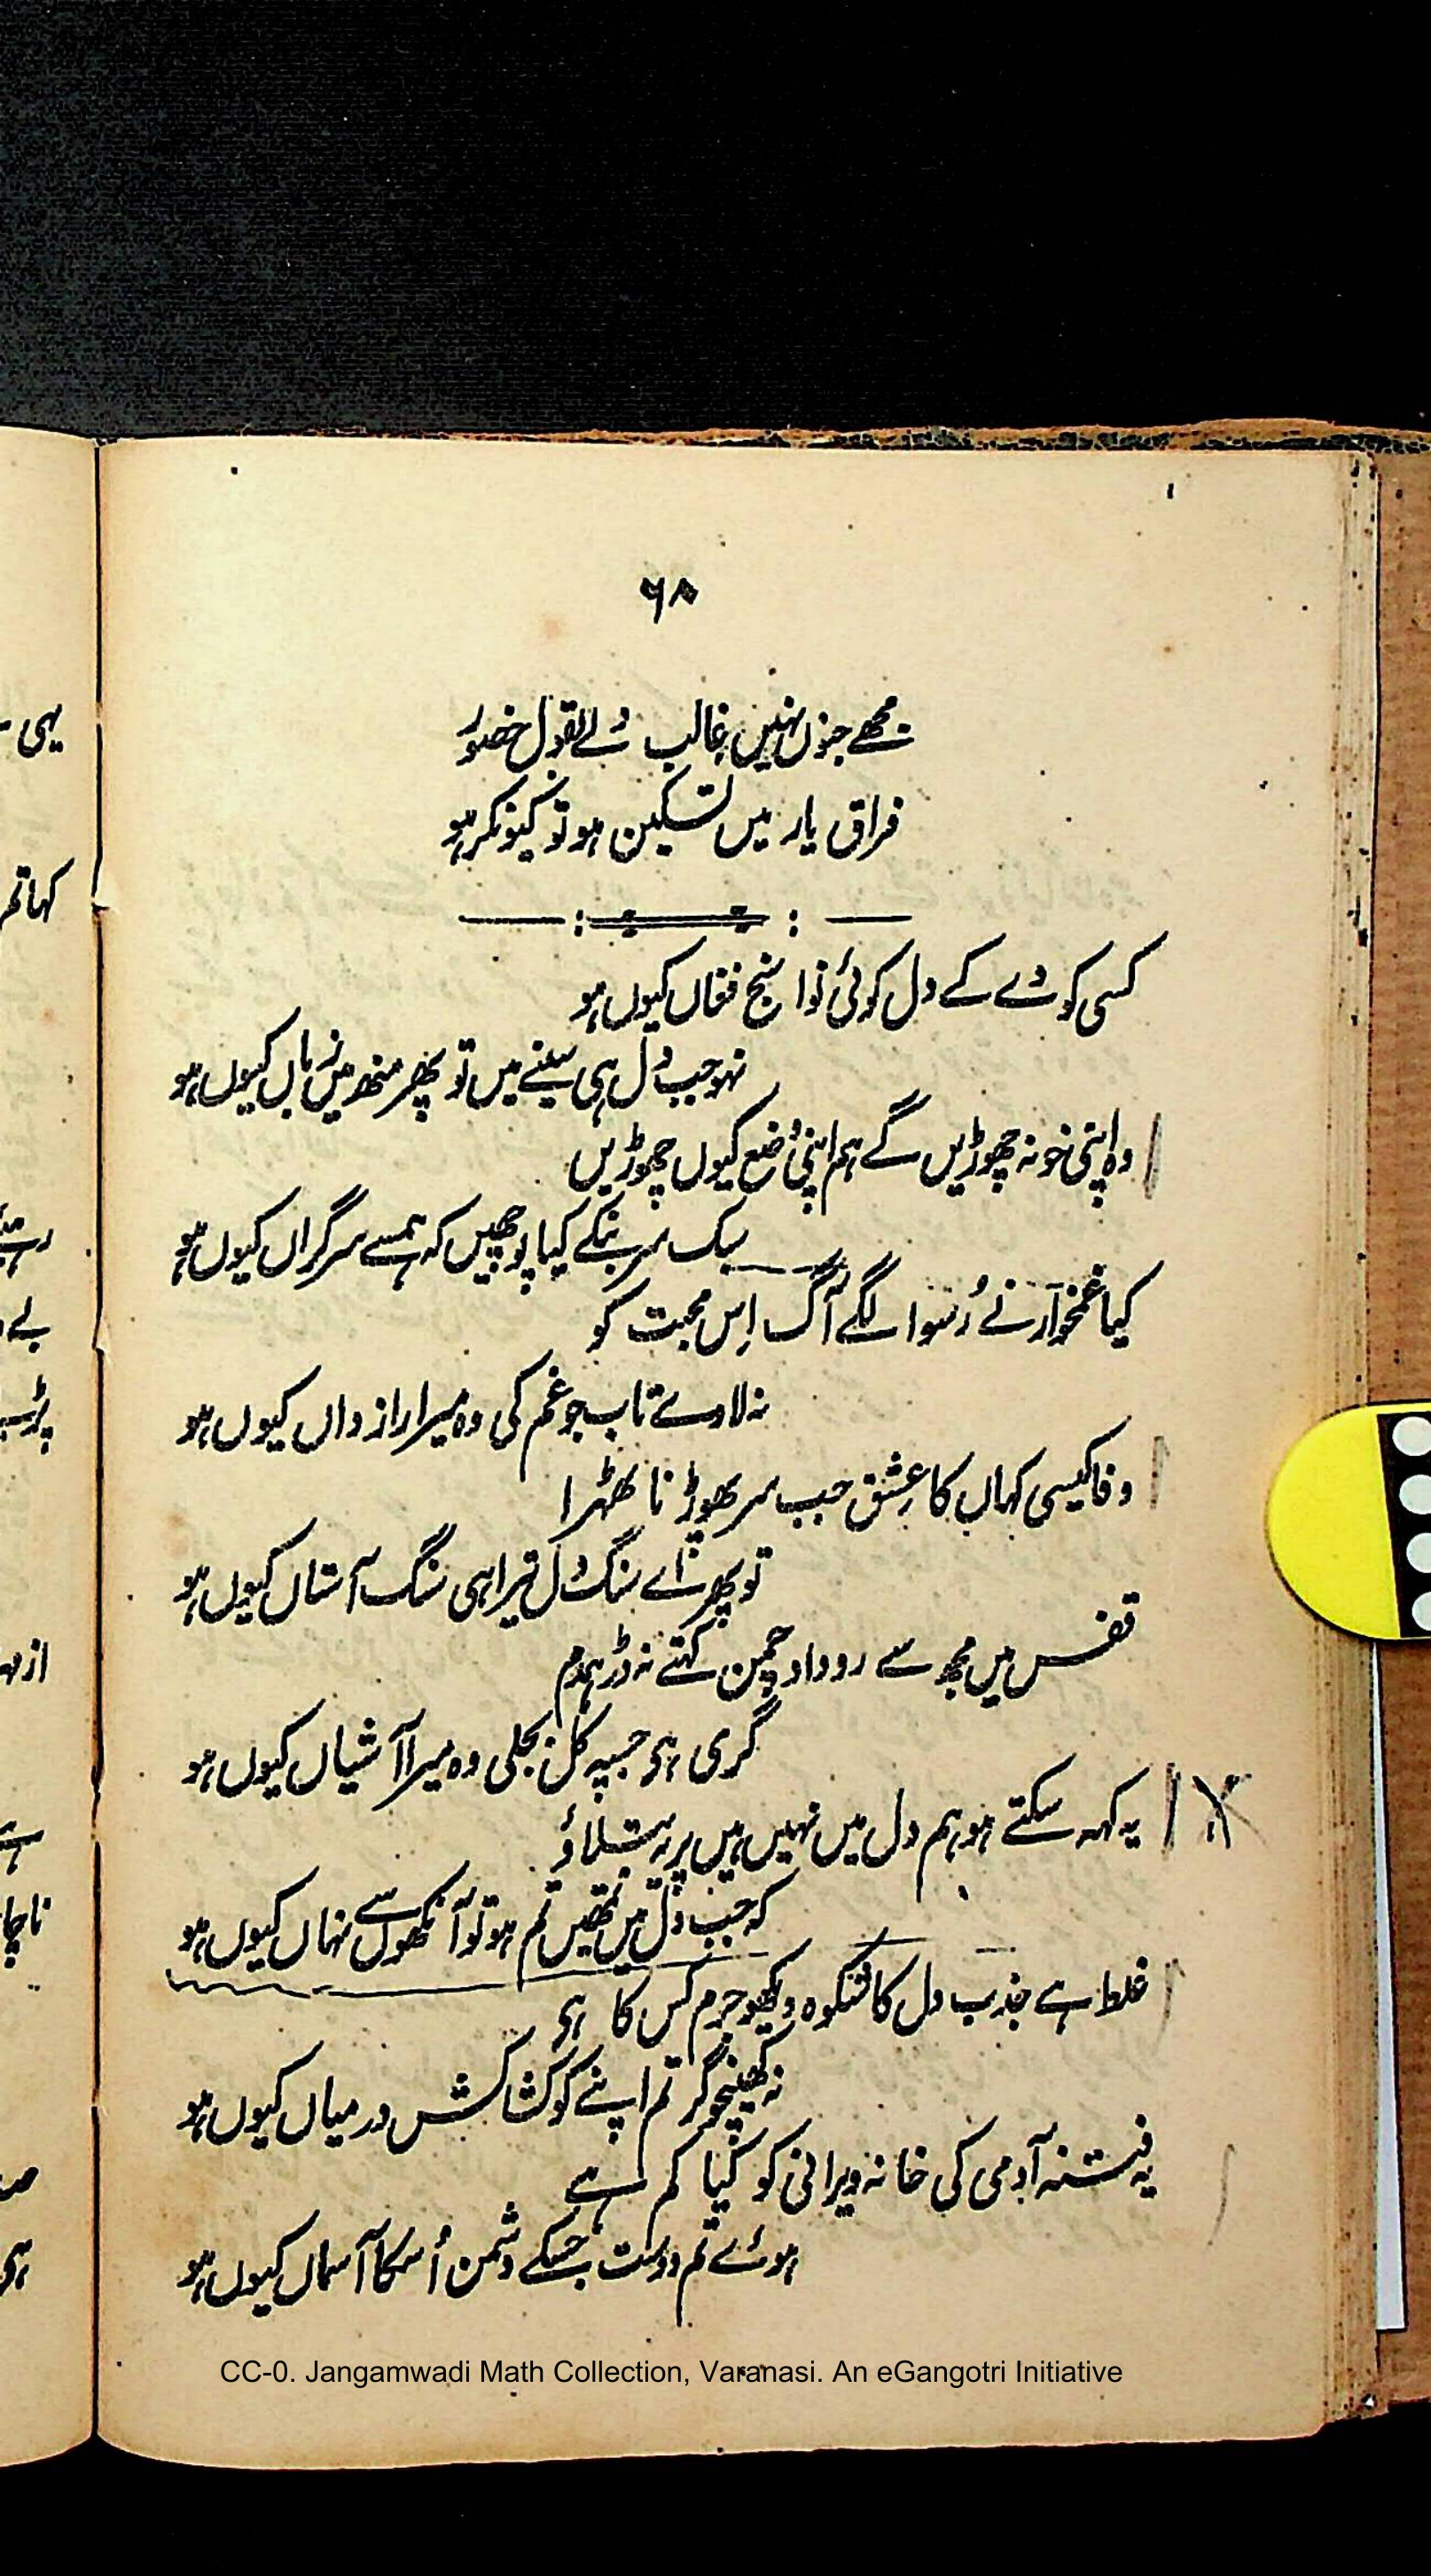 ۶۸
مجھے جنوں نہیں غالب ولے بقول حضور
فراق یار میں تسکین ہو تو کیونکر ہو
کسی کو دے کے دل کوئی نوا سنج فغاں کیوں ہو
نہو جب دل ہی سینے میں تو پھر منھ میں زباں کیوں ہو
وہ اپنی خو نہ چھوڑیں گے ہم اپنی وضع کیوں چھوڑیں
سبک سر بنکے کیا پوچھیں کہ ہمسے سرگراں کیوں ہو
کیا غمخوار نے رُسوا لگے آگ اِس محبت کو
نہ لاوے تاب جو غم کی وہ میرا راز داں کیوں ہو
وفا کیسی کہاں کا عِشق جب سر پھوڑنا ٹھہرا
تو پھر اے سنگ دل تیرا ہی سنگ آستاں کیوں ہو
قفس میں مجھ سے روداد چمن کہتے نہ ڈر ہمدم
گری ہی جسپہ کل بجلی وہ میرا آشیاں کیوں ہو
یہ کہہ سکتے ہو ہم دل میں نہیں ہیں پر یہ بتلاؤ
کہ جب دل میں تمھیں تم ہو تو آنکھوں سے نہاں کیوں ہو
غلط ہے جذب دل کا شکوہ دیکھو جرم کس کا ہی
نہ کھینچو گر تم اپنے کو کشاکش درمیاں کیوں ہو
یہ فتنہ آدمی کی خانہ ویرانی کو کیا کم ہے
ہوئے تم دوست جسکے دشمن اُسکا آسماں کیوں ہو
CC-0. Jangamwadi Math Collection, Varanasi. An eGangotri Initiative